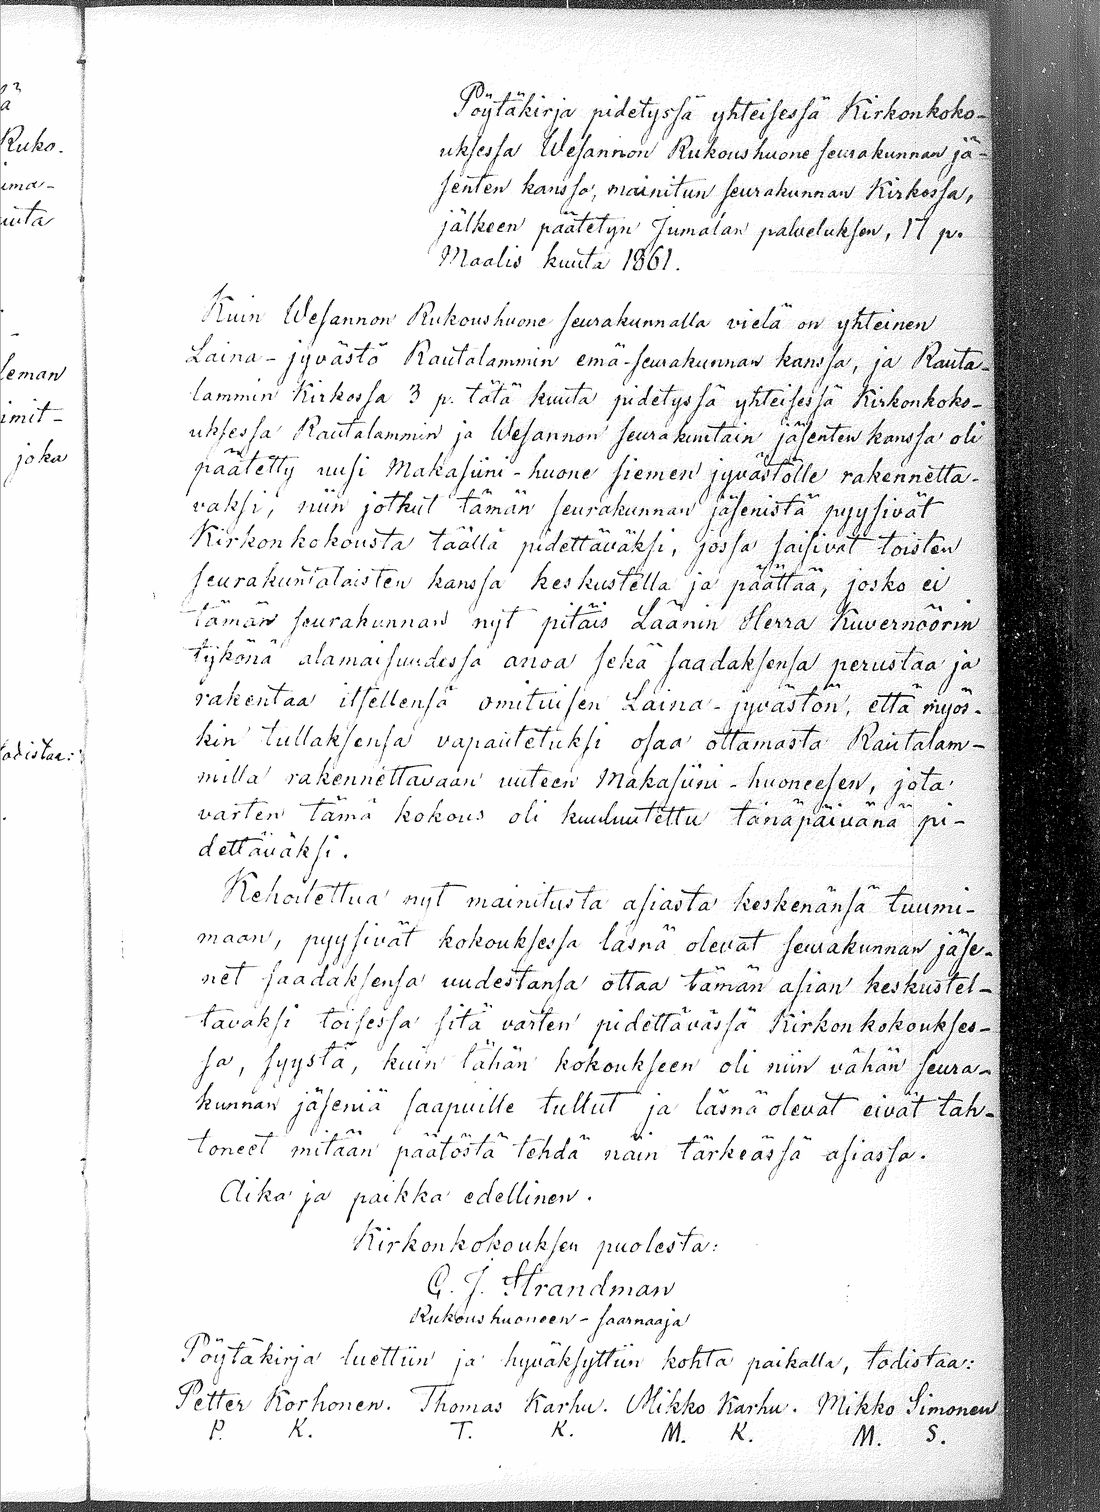 Pöytäkirja pidetyssä yhteisessä Kirkonkoko-
uksessa Wesannon Rukoushuone seurakunnan jä-
senten kanssa, mainitun seurakunnan Kirkossa,
jälkeen päätetyn Jumalan palveluksen, 17 p.
Maalis kuuta 1861.
Kuin Wesannon Rukoushuone seurakunnalla vielä on yhteinen
Laina-jyvästö Rautalammin emä-seurakunnan kanssa, ja Rauta-
lammin Kirkossa 3 p. tätä kuuta pidetyssä yhteisessä Kirkonkoko-
uksessa Rautalammin ja Wesannon seurakuntain jäsenten kanssa oli
päätetty uusi Makasiini-huone siemen jyvästölle rakennetta-
vaksi, niin jotkut tämän seurakunnan jäsenistä pyysivät
Kirkonkokousta täällä pidettäväksi, jossa saisivat toisten
seurakuntalaisten kanssa keskustella ja päättää, josko ei
tämän seurakunnan nyt pitäis Läänin Herra Kuvernöörin
tykönä alamaisuudessa anoa sekä saadaksensa perustaa ja
rakentaa itsellensä omituisen Laina-jyvästön, että myös-
kin tullaksensa vapautetuksi osaa ottamasta Rautalam-
milla rakennettavaan uuteen Makasiini-huoneesen, jota
varten tämä kokous oli kuuluutettu tänäpäivänä pi-
dettäväksi.
Kehoitettua nyt mainitusta asiasta keskenänsä tuumi-
maan, pyysivät kokouksessa läsnä olevat seurakunnan jäse-
net saadaksensa uudestansa ottaa tämän asian keskustel-
tavaksi toisessa sitä varten pidettävässä Kirkonkokoukses-
sa, syystä, kuin tähän kokoukseen oli niin vähän seura-
kunnan jäseniä saapuille tullut ja läsnä olevat eivät tah-
toneet mitään päätöstä tehdä näin tärkeässä asiassa.
Aika ja paikka edellinen.
Kirkonkokouksen puolesta:
G. J. Strandman
Rukoushuoneen-saarnaaja
Pöytäkirja luettiin ja hyväksyttiin kohta paikalla, todistaa:
Petter Korhonen. Thomas Karhu. Mikko Karhu. Mikko Simonen
P. K. T. K. M. K. M. S.